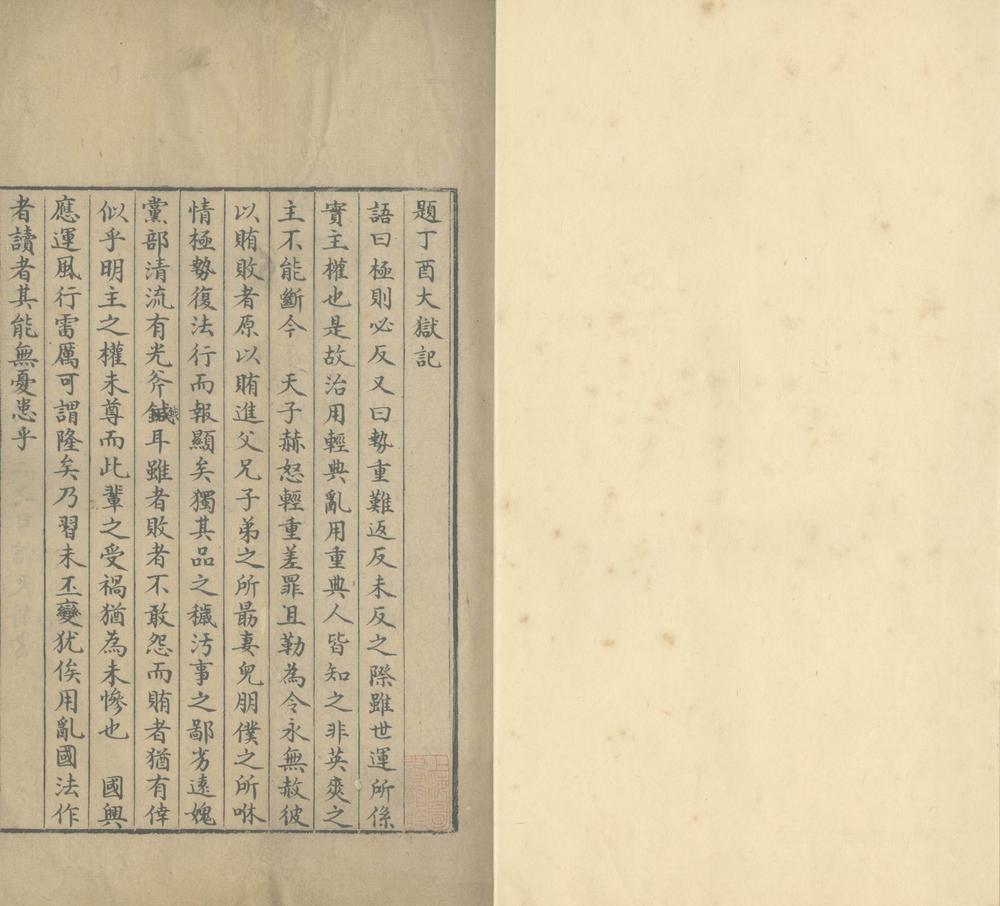 題丁酉大獄記
語曰極則必反又曰勢重難返反未反之際雖世運所係
實主權也是故治用輕典亂用重典人皆知之非英爽之
主不能斷今 天子赫怒輕重差罪且勒為令永無赦彼
以賄敗者原以賄進父兄子弟之所勗妻兒朋僕之所咻
情極勢復法行而報顯矣獨其品之穢汚事之鄙劣遠媿
黨部清流有光斧鍼耳雖者敗者不敢怨而賄者猶有倖
似乎明主之權未尊而此輩之受禍猶為未慘也 國興
應運風行雷厲可謂隆矣乃習未丕變犹俟用亂國法作
者讀者其能無憂患乎
上海圖書館藏